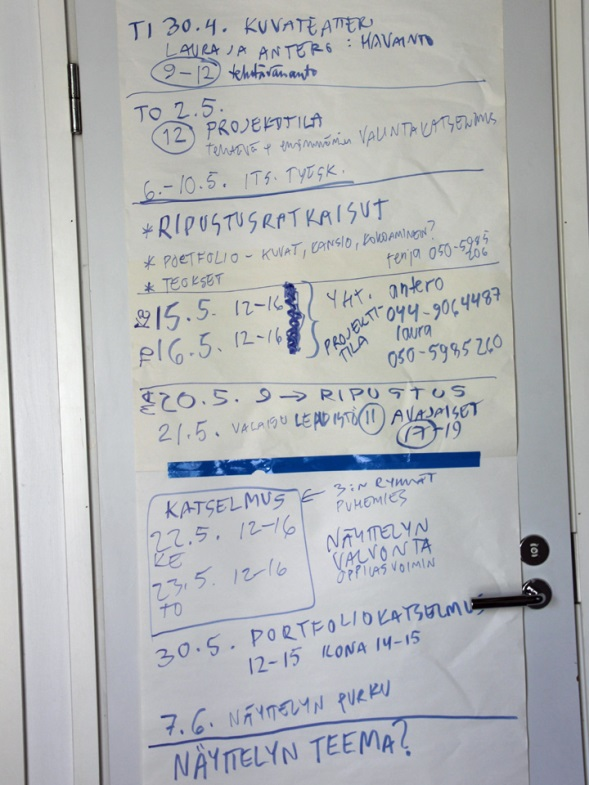 TI 30.4. KUVATEATTERI
LAURA JA ANTERO : HAVAINTO
9-12 tehtävänanto
TO 2.5.
12 PROJEKTITILA
tehtävä + ensimmäinen VALINTAKATSELMUS
6.-10.5. ITS. TYÖSK.
*RIPUSTUSRATKAISUT
* PORTFOLIO - KUVAT, KANSIO, KOKOAMINEN?
* TEOKSET
15.5. 12-16
16.5. 12-16
YHT.
PROJEKTI-
TILA
antero
044-9064487
laura
050-5985260
20.5. 9 → RIPUSTUS
21.5. VALAISU LEHDISTÖ 11 AVAJAISET
17-19
KATSELMUS
22.5. 12-16
KE
23.5. 12-16
TO
← 3:n RYHMÄT
PUHEMIES
NÄYTTELYN
VALVONTA
OPPILASVOIMIN
30.5. PORTFOLIOKATSELMUS
12-15 ILONA 14-15
7.6. NÄYTTELYN PURKU
NÄYTTELYN TEEMA?